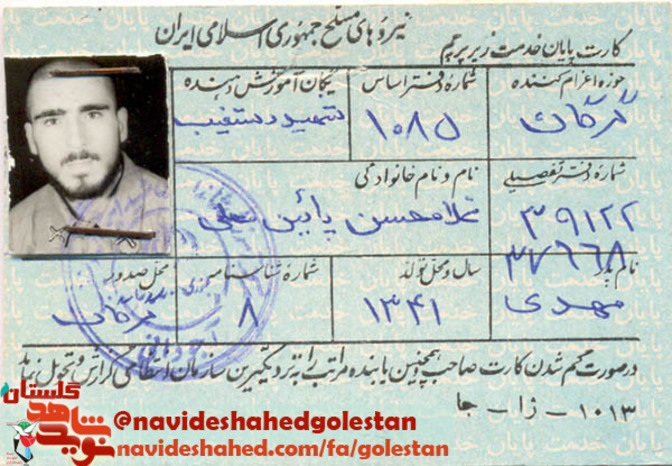 نیروهای مسلح جمهوری اسلامی ایران
کارت پایان خدمت زیر پرچم
حوزه اعزام کننده
گرگان
شماره دفتر اساس
۱۰۸۵
یگان آموزش دهنده
شهید دستغیب
شماره دفتر تفصیلی
۳۹۱۲۲
۳۷۶۶۸
نام و نام خانوادگی
غلامحسن پائین محلی
نام پدر
مهدی
سال و محل تولد
۱۳۴۱
شماره شناسنامه
۸
محل صدور
گرگان
در صورت گم شدن کارت صاحب و همچنین یابنده مراتب را به نزدیکترین سازمان انتظامی گزارش و تحویل نماید
۱۰۱۳ - ژا - جا
گلستان
نوید شاهد
@navideshahedgolestan
navideshahed.com/fa/golestan